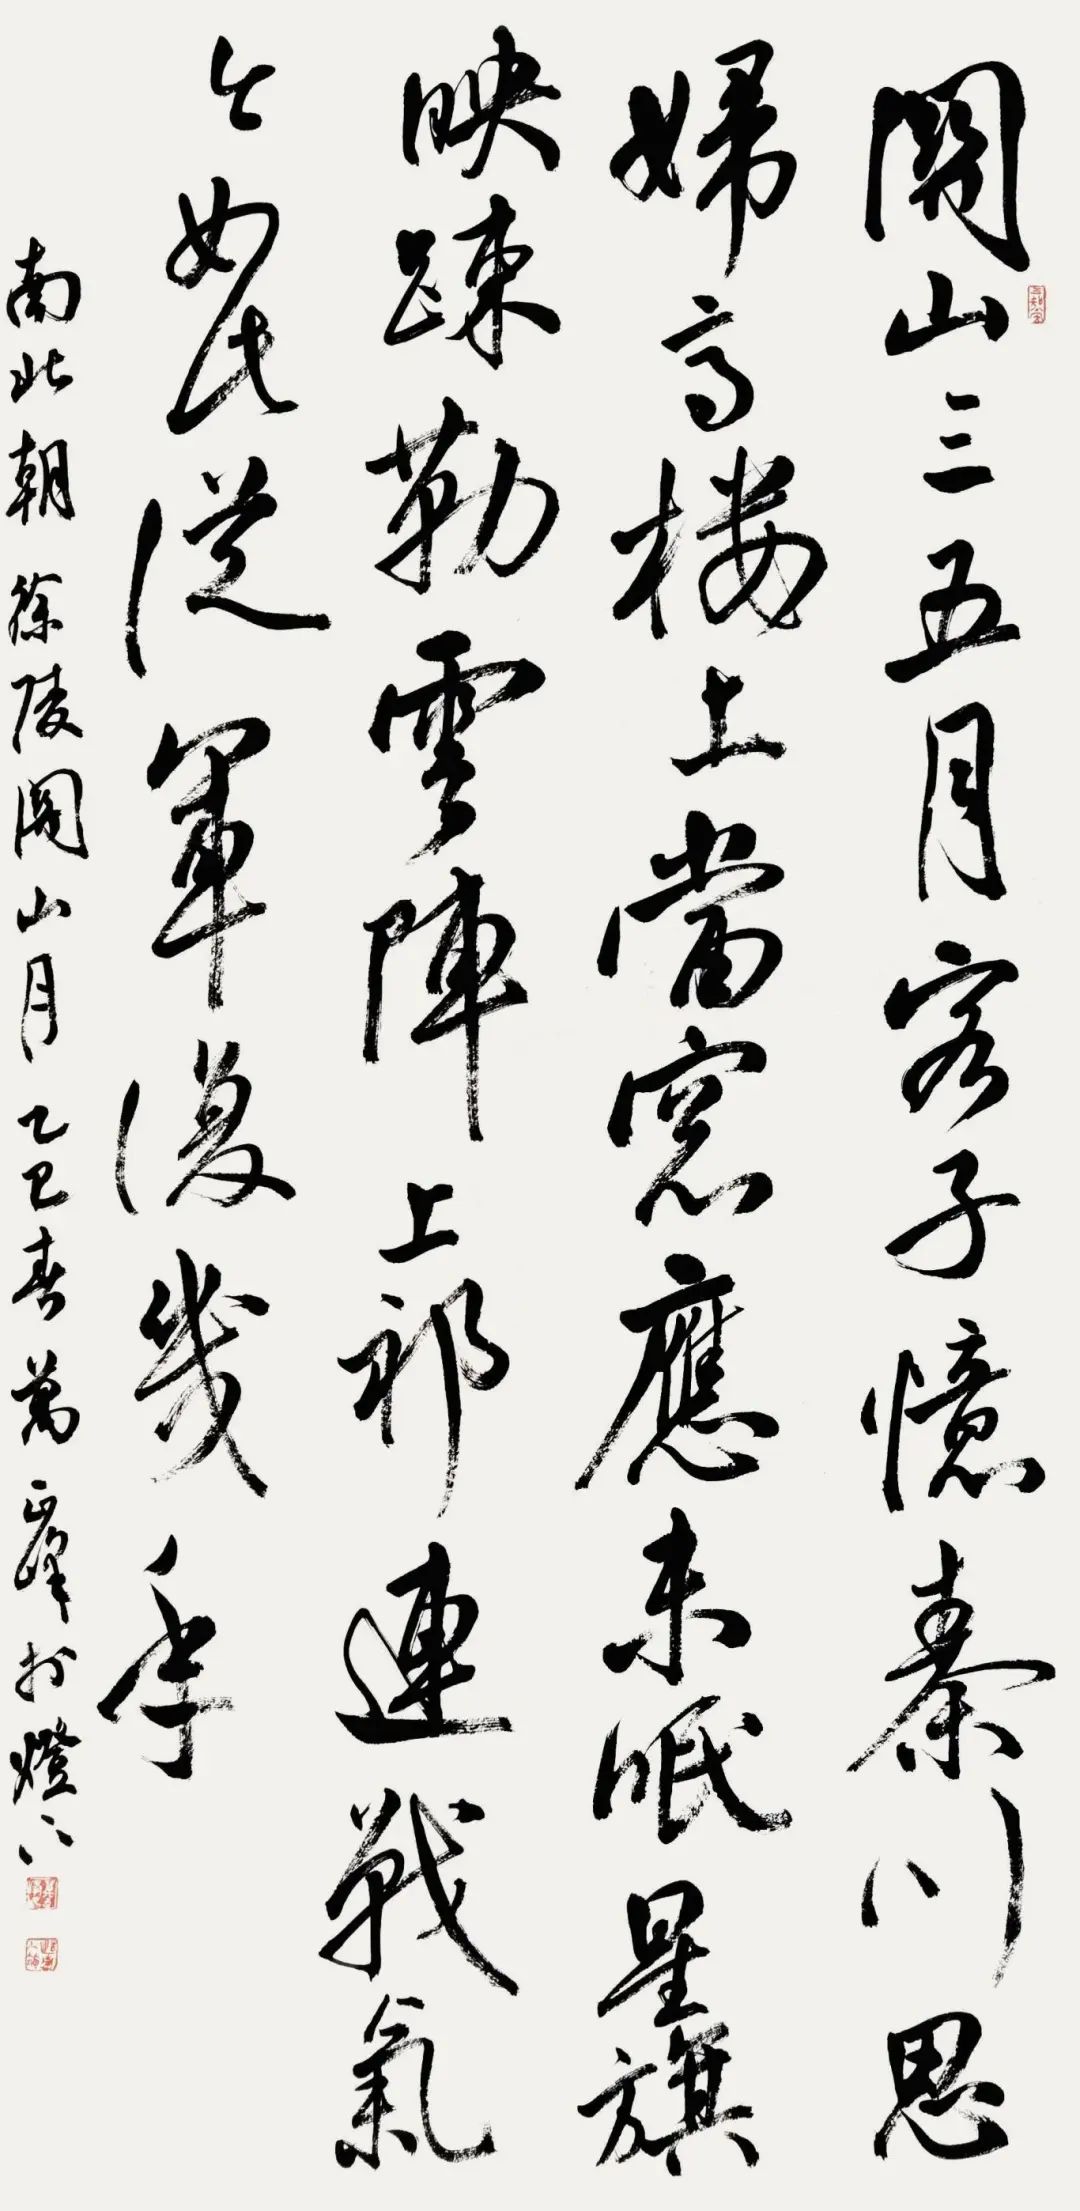 關山三五月客子憶秦川思
婦高樓上當窓應未眠星旗
映疎勒雲陣上祁連戰氣
今如此從軍復幾年
南北朝徐陵關山月乙巳春萬峰於燈下